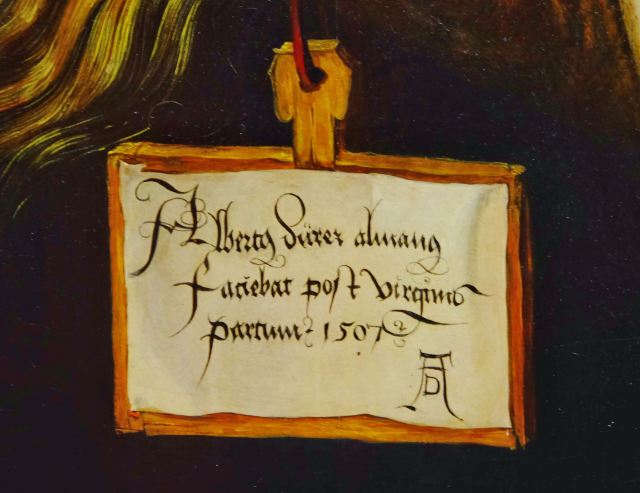 Albertꝰ Dürer almanꝰ
faciebat post virginis
partum 1507
AD